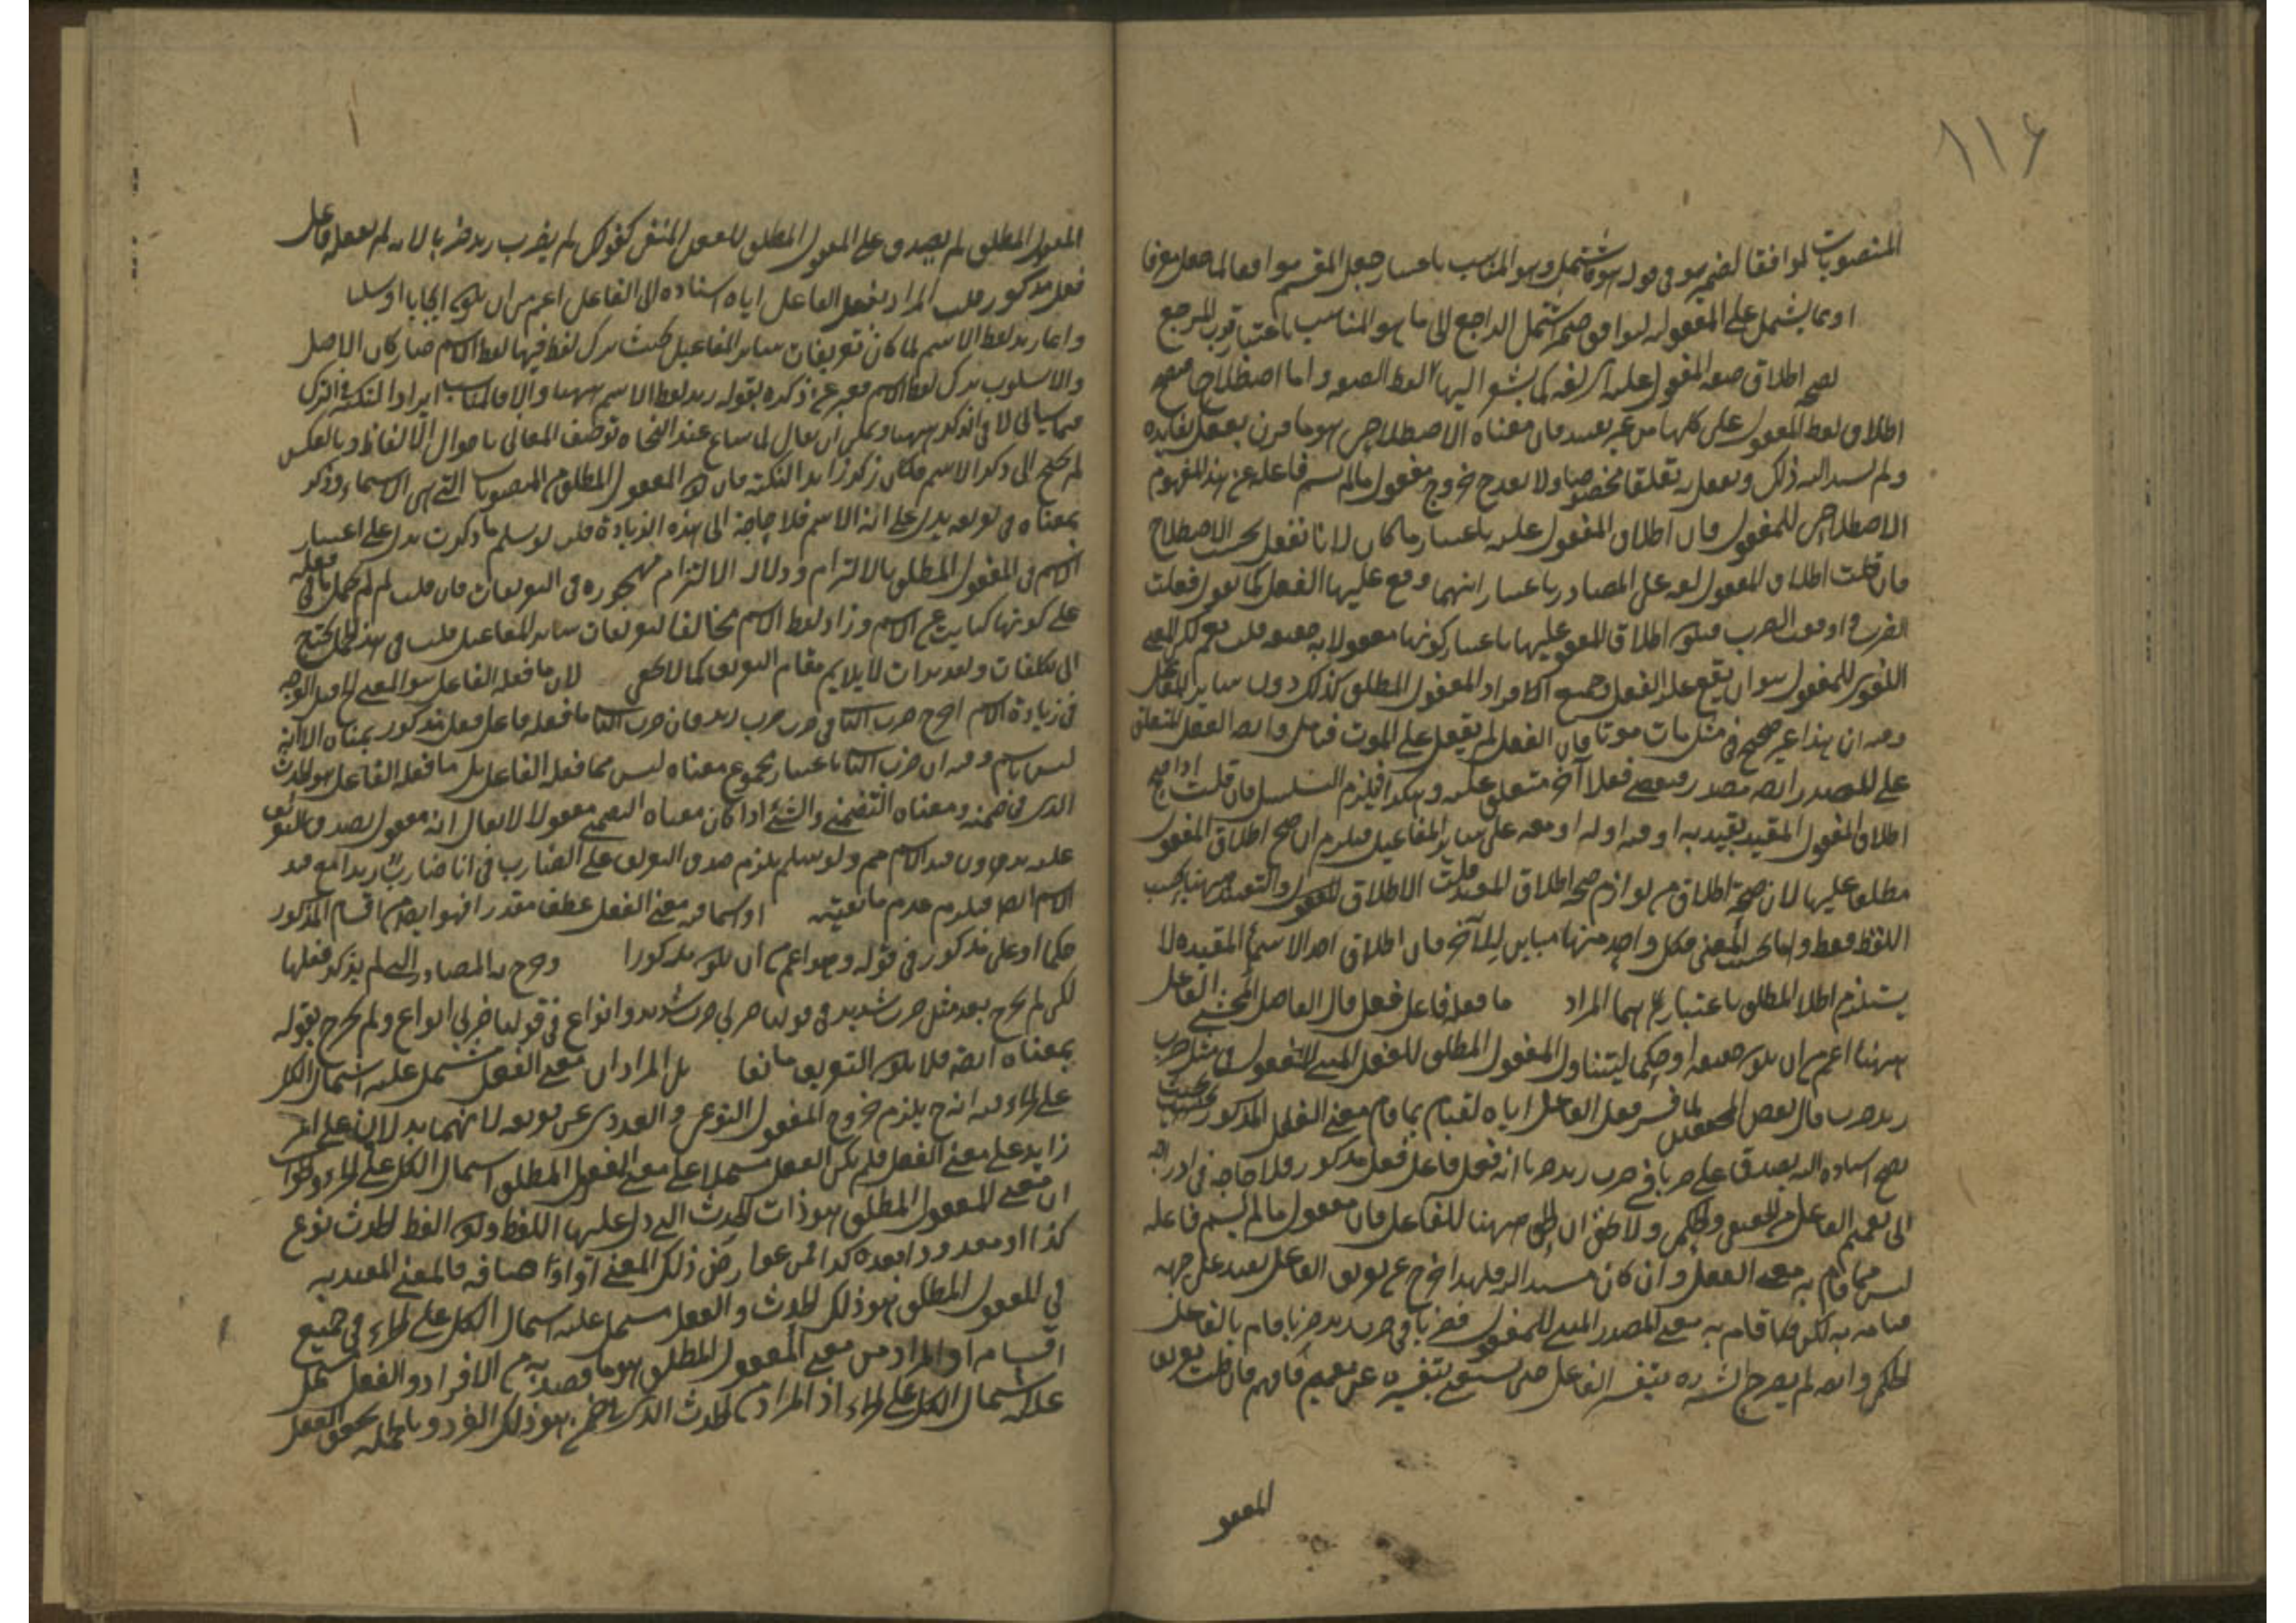 ١١٦
المنصوبات لموافقا لضمير هو في قوله هو ما اشتمل وهو المناسب باعتبار جعل المقسم موافقا لما جعل معرفا
او بما يشتمل على المفعولية ليوافق ضمير اشتمل الراجع الى ما هو المناسب باعتبار قرب المرجع
لصحة اطلاق صيغة المفعول عليه لغة كما يشير اليها لفظ الصيغة واما اصطلاحا
اطلاق لفظ المفعول على كلها من غير تقييد فان معناه الاصطلاحي هو ما قرن بفعل لفائدة
ولم يسند اليه ذلك وتعلق به تعلقا مخصوصا ولا يقدح خروج مفعول ما لم يسم فاعله عن هذا المفهوم
الاصطلاحي للمفعول فان اطلاق المفعول عليه باعتبار ما كان لا انا نفعل بحسب الاصطلاح
فان قلت اطلاق المفعول لغة على المصادر باعتبار انها وقع عليها الفعل كما تقول فعلت
الضرب او اوقعت الضرب فيكون اطلاق المفعول عليها باعتبار كونها مفعولا به حقيقة قلت نعم لكن المعنى
اللغوي للمفعول هو ان يقع عليه الفعل وجميع افراد المفعول المطلق كذلك دون سائر المفاعيل
وفيه ان هذا غير صحيح في مثل مات موتا فان الفعل لم يقع على الموت فتأمل وايضا الفعل المتعلق
على المصدر ايضا مصدر فيقتضي فعلا آخر متعلق عليه وهكذا فيلزم التسلسل فان قلت اذا صح
اطلاق المفعول المقيد بقيد به او فيه او له او معه على سائر المفاعيل فيلزم ان صح اطلاق المفعول
مطلقا عليها لان صحة اطلاق من لوازم صحة اطلاق المقيد قلت الاطلاق للمفعول والتقييد ههنا بحسب
اللفظ فقط واما بحسب المعنى فكل واحد منها مباين للآخر فان اطلاق احد الاسماء المقيدة لا
يستلزم اطلاق المطلق باعتبار المراد ما فعله فاعل فعل قال الفاضل المحشي الفاعل
ههنا اعم من ان يكون حقيقة او حكما ليتناول المفعول المطلق للفعل المبني للمفعول في مثل ضرب
زيد ضربا قال بعض المحققين لما فسر فعل الفاعل اياه لقيام بما قام معنى الفعل المذكور بحيث
يصح اسناده اليه يصدق على ضربا في ضرب زيد ضربا انه فعل فاعل فعل مذكور فلا حاجة في ادراجه
الى تعميم الفاعل من الحقيقي والحكمي ولا ظن ان الحكمي ههنا للفاعل فان مفعول ما لم يسم فاعله
ليس مما قام به معنى الفعل وان كان مسندا اليه فلهذا اخرج عن تعريف الفاعل بقيد على جهة
قيامه به لكن كما قام به معنى المصدر المبني للمفعول فضربا في ضرب زيد ضربا قام بالفاعل
الحكمي وايضا لم يصرح الشارح بتفسير الفاعل حتى يستغني بتفسيره عن تعميم فافهم فان قلت تعريف
المفعو
المفعول المطلق لم يصدق على المفعول المطلق للفعل المنفي كقولك لم يضرب زيد ضربا لانه لم يفعله فاعل
فعل مذكور قلت المراد بفعل الفاعل اياه اسناده الى الفاعل اعم من ان يكون ايجابا او سلبا
وانما زيد لفظ الاسم لما كان تعريفات سائر المفاعيل بحيث ترك لفظ فيها لفظ الاسم صار كأن الاصل
والاسلوب ترك لفظ الاسم فعبر عن ذكره بقوله زيد لفظ الاسم ههنا والا فالمناسب ايراد النكتة في الترك
فيما سيأتي لا في الذكر ههنا ويمكن ان يقال لما شاع عند النحاة توصيف المعاني باحوال الالفاظ وبالعكس
لم يحتج الى ذكر الاسم فكان ذكره زائدا لنكتة فان كون المفعول المطلق من المنصوبات التي هي الاسماء وذكر
بمعناه في تعريفه يدل على انه الاسم فلا حاجة الى هذه الزيادة قلت لو سلم ما ذكرت يدل على اعتبار
الاسم في المفعول المطلق بالالتزام ودلالة الالتزام مهجورة في التعريفات فان قلت لم لم يحمل ما في فعله
على كونها كناية عن الاسم وزاد لفظ الاسم مخالفا لتعريفات سائر المفاعيل قلت في هذا الحمل يحتاج
الى تكلفات وتقديرات لا يلايم مقام التعريف كما لا يخفى لان ما فعله الفاعل هو المعنى
في زيادة الاسم اخرج ضرب الثاني في ضرب ضرب زيد فان ضرب الثاني ما فعله فاعل فعل مذكور بمعناه الا انه
ليس باسم وفيه ان ضرب الثاني باعتبار مجموع معناه ليس مما فعله الفاعل بل ما فعله الفاعل هو الحدث
الذي في ضمنه ومعناه التضمني والشيء اذا كان معناه التضمني مفعولا لا يقال انه مفعول يصدق التعريف
عليه بدون قيد الاسم ولو سلم يلزم صدق التعريف على الضارب في انا ضارب زيدا مع قيد
الاسم ايضا فيلزم عدم مانعيته او اسما فيه معنى الفعل عطف مقدر افهو ايضا من اقسام المذكور
حكما او على مذكور في قوله وهو اعم من ان يكون مذكورا وخرج به المصادر التي لم يذكر فعلها
لكن لم يخرج بعد مثل ضرب شديد في قولنا ضربي ضرب شديد وانواع في قولنا ضربي انواع ولم يخرج بقوله
بمعناه ايضا فلا يكون التعريف مانعا بل المراد ان معنى الفعل مشتمل عليه اشتمال الكل
على الجزء فيه انه ح يلزم خروج المفعول النوعي والعددي عن تعريفه لانهما يدلان على امر
زايد على معنى الفعل فلم يكن الفعل مشتملا على معنى المفعول المطلق اشتمال الكل على الجزء والجواب
ان معنى المفعول المطلق هو ذات الحدث التي دل عليها اللفظ وكون اللفظ لحدث نوع
كذا او معدود بعدد كذا من عوارض ذلك المعنى او اوصافه فالمعنى المعتد به
في المفعول المطلق هو ذلك الحدث والفعل مشتمل عليه اشتمال الكل على الجزء في جميع
اقسامه او المراد من معنى المفعول المطلق هو ما قصد به من الافراد والفعل يشتمل
عليه اشتمال الكل على الجزء اذ المراد من الحدث الذي في ضمنه هو ذلك الفرد وبالجملة تحقق الفعل